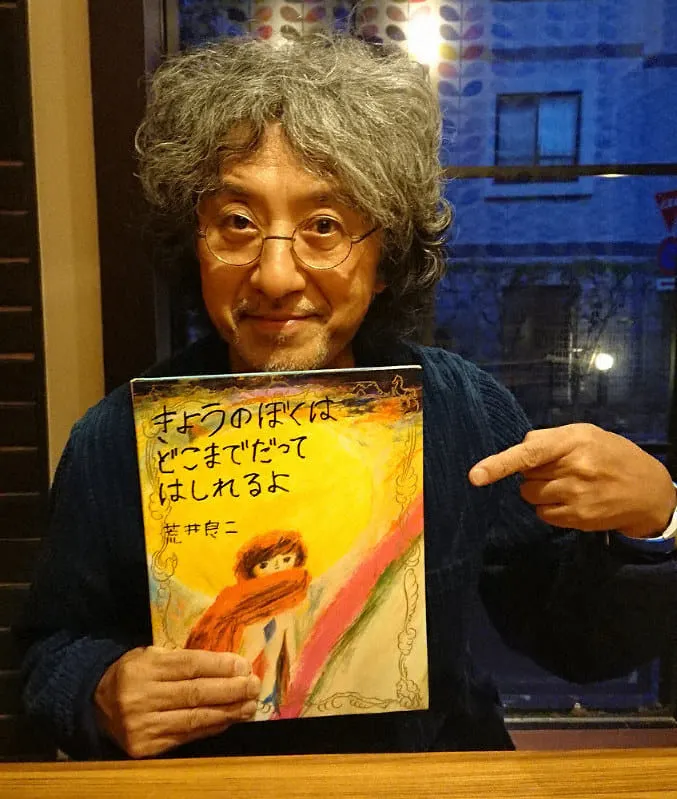 きょうのぼくは
どこまでだって
はしれるよ
荒井良二